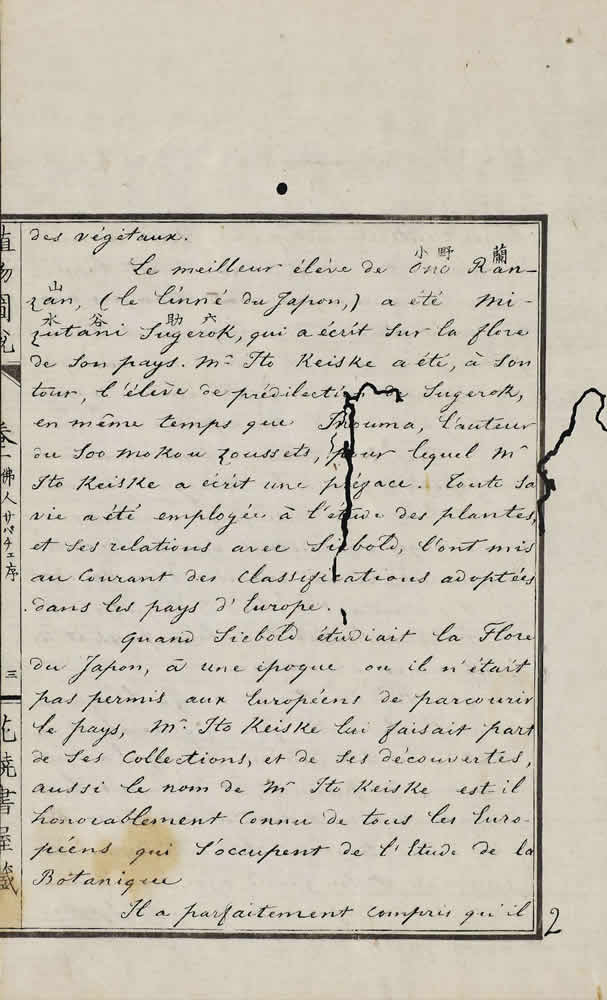 des végétaux.
小野 蘭
Le meilleur élève de Ono Ran-
山
zan, (le linné du Japon,) a été Mi-
水谷 助六
zutani Sugerok, qui a écrit sur la flore
de son pays. Mr Ito Keiske a été, à son
tour, l'élève de prédilection de Sugerok,
en même temps que Inouma, l'auteur
du Soo mokou zoussets, pour lequel Mr
Ito Keiske a écrit une préface. Toute sa
vie a été employée à l'étude des plantes,
et ses relations avec Siebold, l'ont mis
au courant des classifications adoptées
dans les pays d'Europe.
Quand Siebold étudiait la Flore
du Japon, à une époque ou il n'était
pas permis aux Européens de parcourir
le pays, Mr. Ito Keiske lui faisait part
de ses collections, et de ses découvertes,
aussi le nom de Mr Ito Keiske est il
honorablement connu de tous les Euro-
péens qui s'occupent de l'Etude de la
Botanique
Il a parfaitement compris qu'il
2
植物圖說
卷一
佛人サバチェ序
三
花繞書屋藏